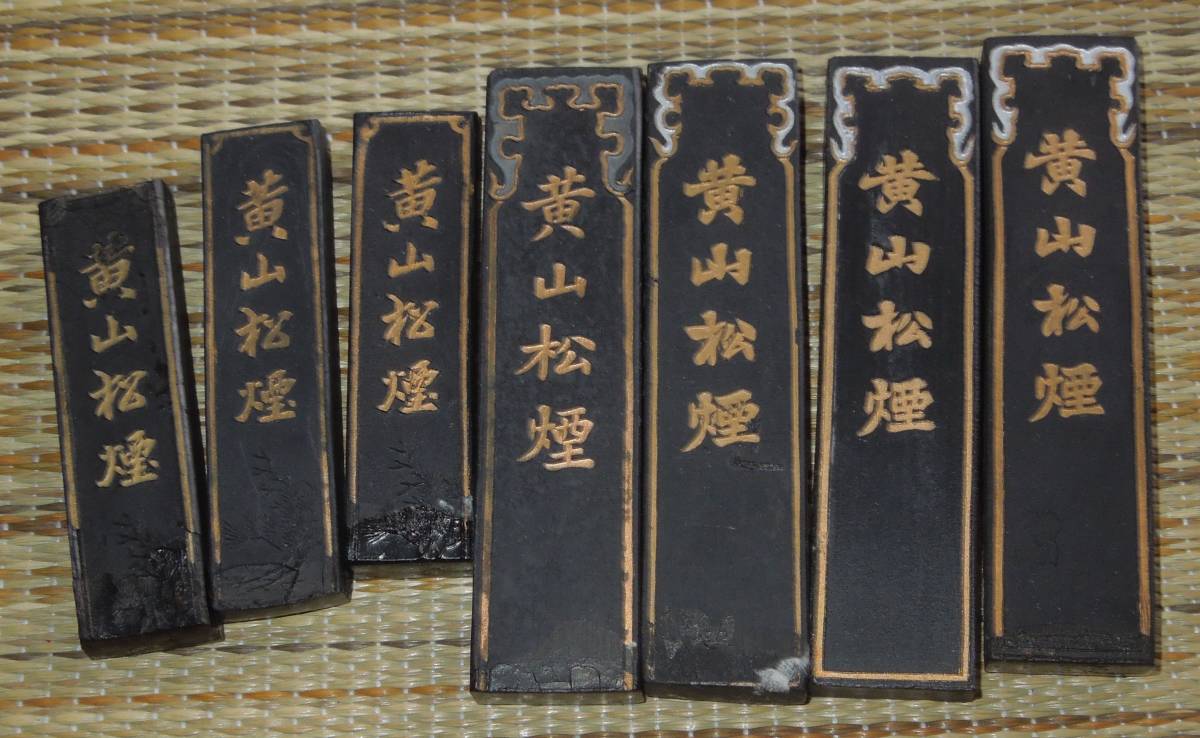 黄山松煙
黄山松煙
黄山松煙
黄山松煙
黄山松煙
黄山松煙
黄山松煙